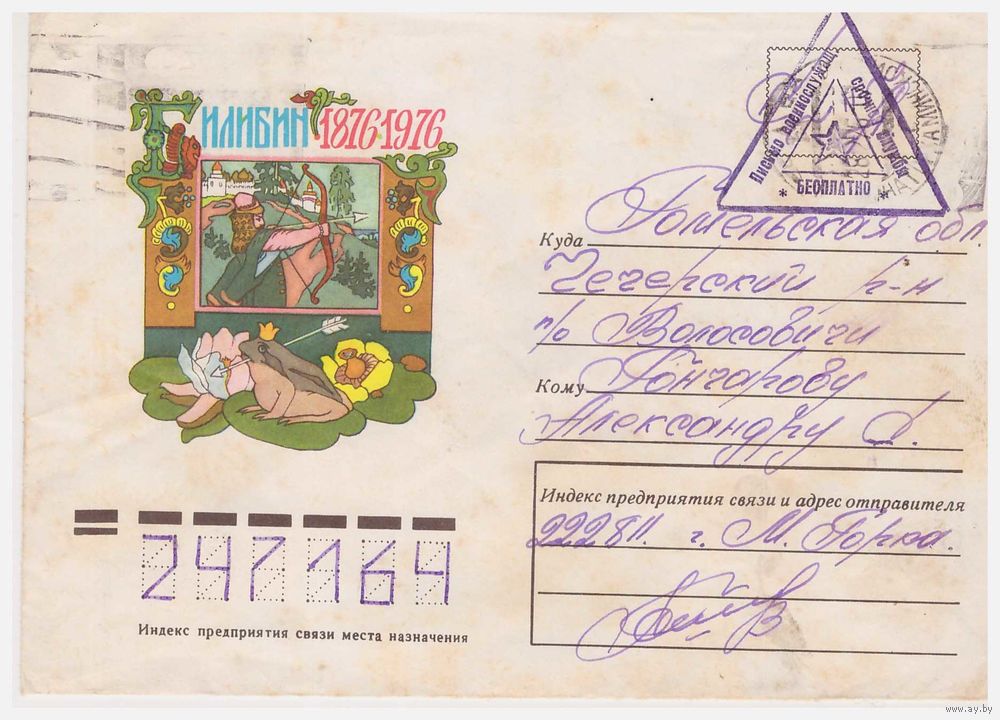 БИЛИБИН 1876•1976
Письмо военнослужащ.
срочной службы
* БЕСПЛАТНО *
Куда Гомельская обл.
Чечерский р-н
п/о Волосовичи
Кому Гончарову
Александру Д.
Индекс предприятия связи и адрес отправителя
222811. г. М. Горка.
247164
Индекс предприятия связи места назначения
www.ay.by